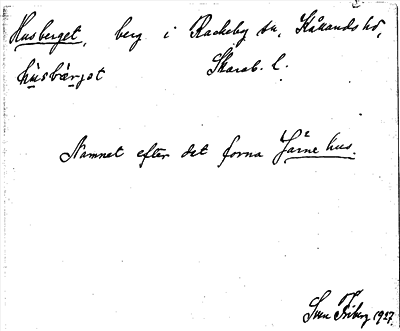 Husberget, berg i Rackeby sn, Kållands hd,
hùsbær̀jət Skarab. l.
Namnet efter det forna Järnehus.
Sven Friberg 1927.